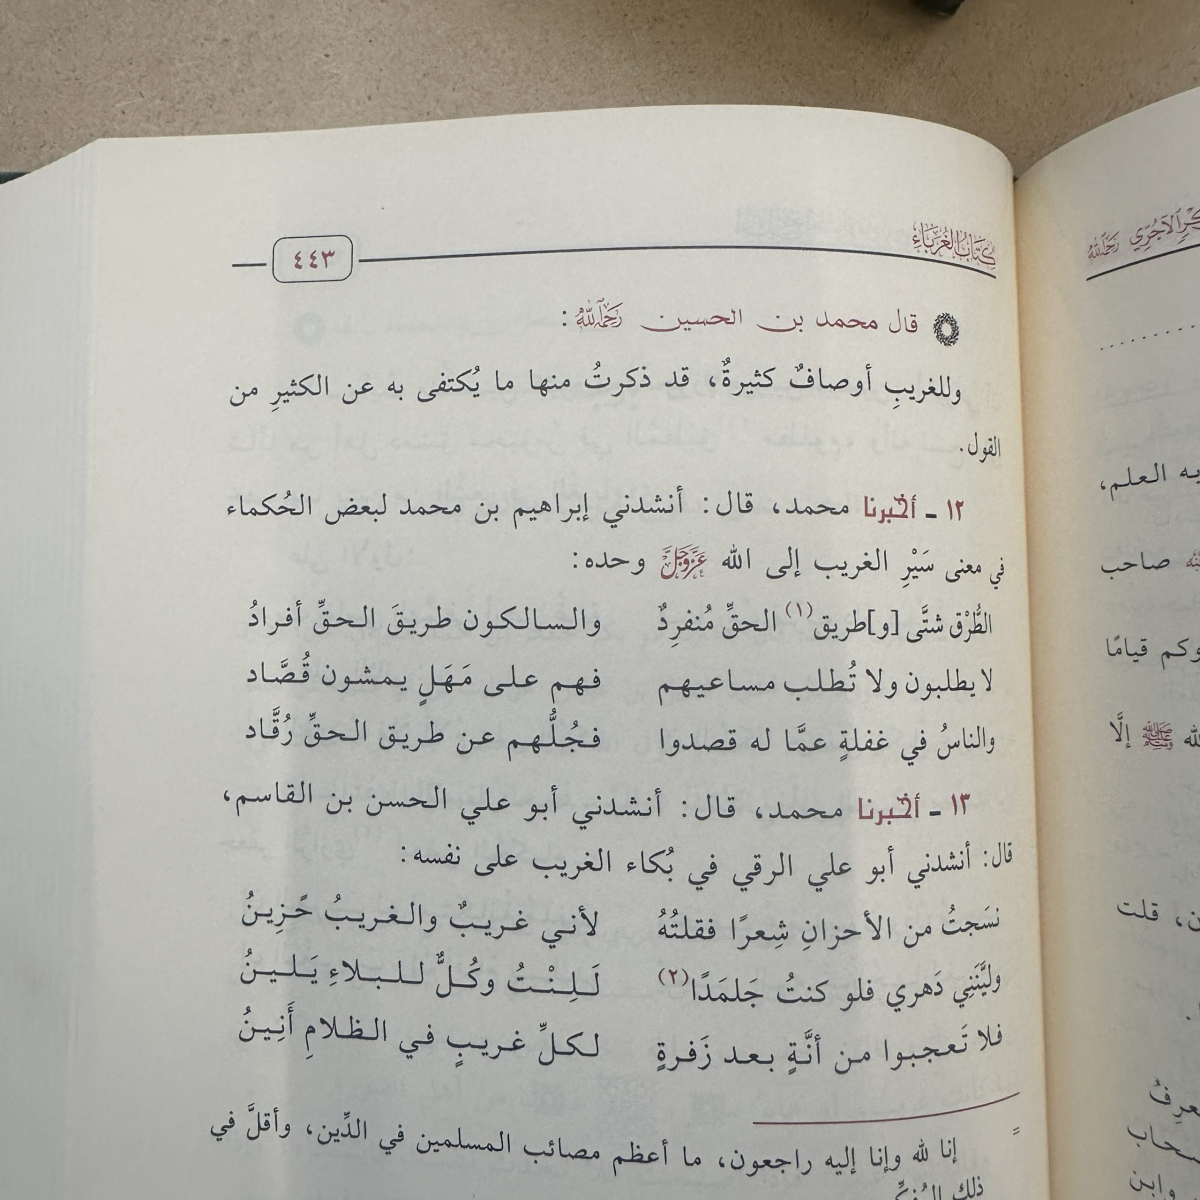 كتاب الغرباء
٤٤٣
قال محمد بن الحسين رَحِمَهُ ٱللَّهُ:
وللغريبِ أوصافٌ كثيرةٌ، قد ذكرتُ منها ما يُكتفى به عن الكثيرِ من
القول.
١٢ ـ أخبرنا محمد، قال: أنشدني إبراهيم بن محمد لبعض الحُكماء
في معنى سَيْرِ الغريب إلى الله عَزَّوَجَلَّ وحده:
الطُّرْق شتَّى [و]طريق(١) الحقِّ مُنفرِدٌ والسالكون طريقَ الحقِّ أفرادُ
لا يطلبون ولا تُطلب مساعيهم فهم على مَهَلٍ يمشون قُصَّاد
والناسُ في غفلةٍ عمَّا له قصدوا فجُلُّهم عن طريق الحقِّ رُقَّاد
١٣ ـ أخبرنا محمد، قال: أنشدني أبو علي الحسن بن القاسم،
قال: أنشدني أبو علي الرقي في بُكاء الغريب على نفسه:
نسَجتُ من الأحزانِ شِعرًا فقلتُهُ لأني غريبٌ والغريبُ حًزِينُ
وليَّنَنِي دَهري فلو كنتُ جَلمَدًا(٢) لَلِنْتُ وكُلٌّ للبلاءِ يَلينُ
فلا تَعجبوا من أنَّةٍ بعد زَفرةٍ لكلِّ غريبٍ في الظلامِ أَنِينُ
= إنا لله وإنا إليه راجعون، ما أعظم مصائب المسلمين في الدِّين، وأقلَّ في
ذلك
الآجُرِّي رَحِمَهُ ٱللَّهُ
العلم،
صاحب
وكم قيامًا
ﷺ إلَّا
قلت
وابن